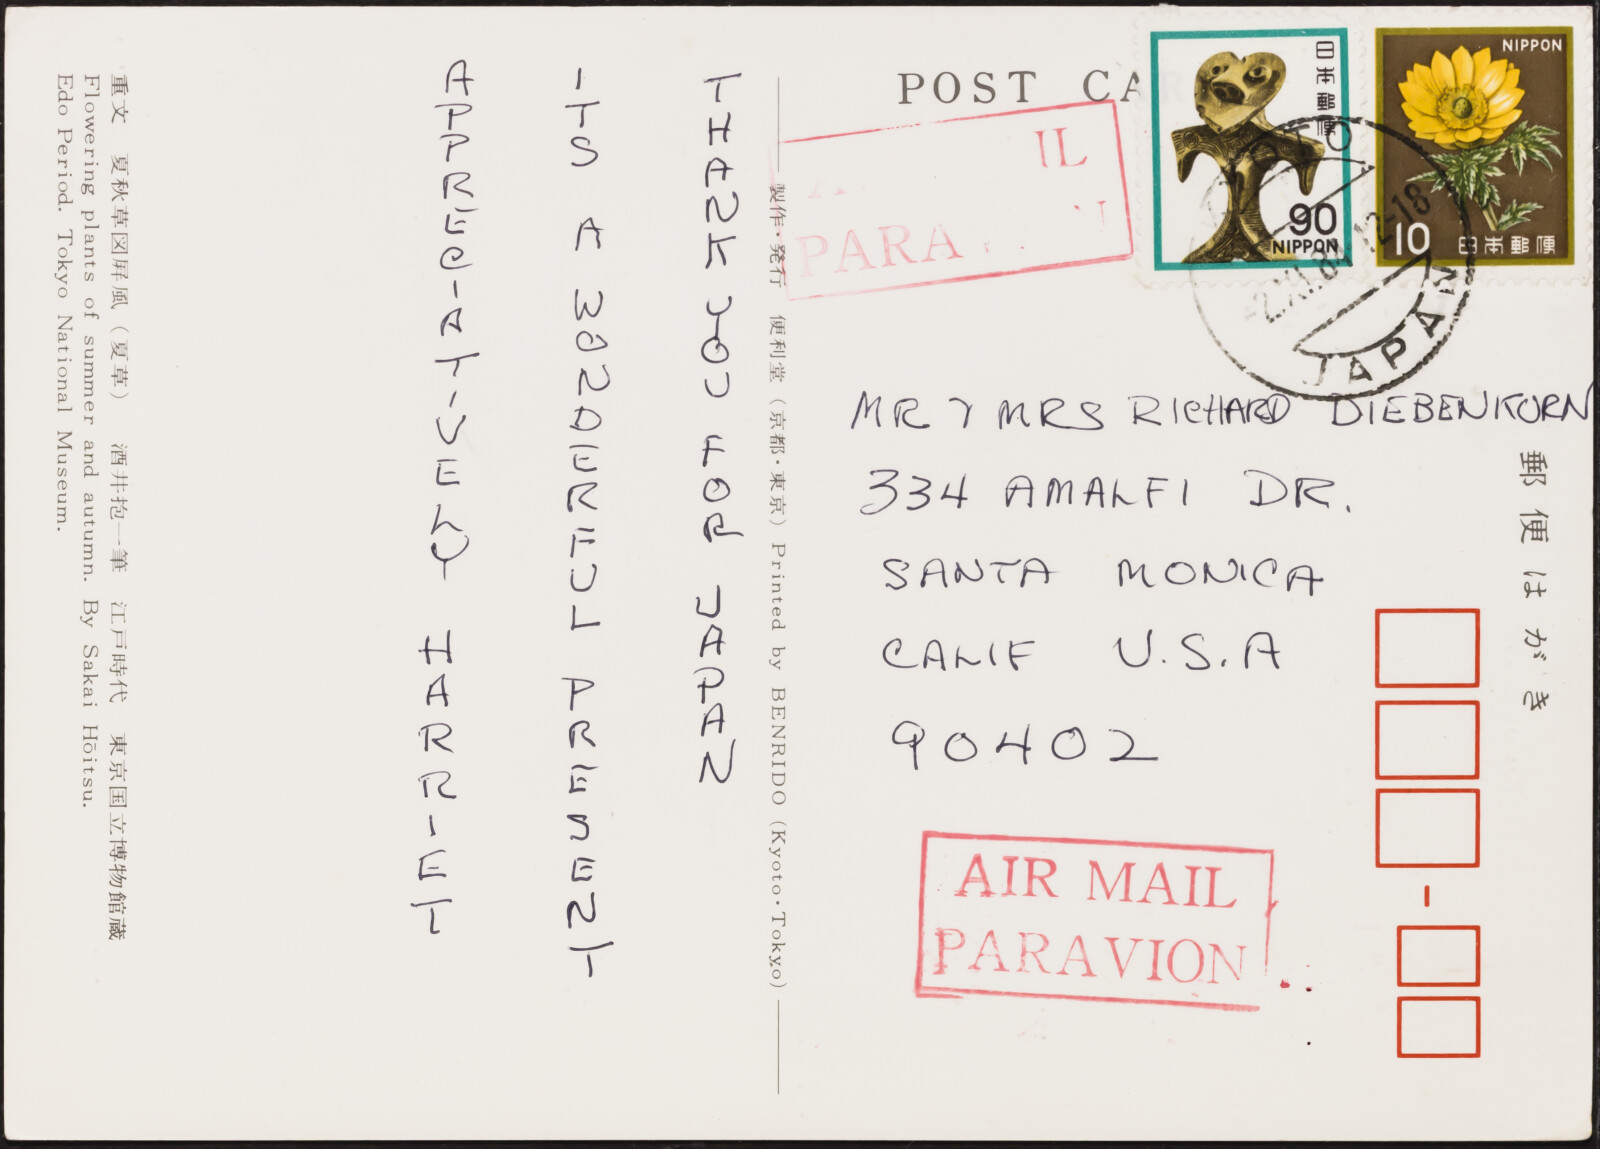 POST CA
日本郵便
90
NIPPON
NIPPON
10
日本郵便
JAPAN
IL
PARA N
THANK YOU FOR JAPAN
ITS A WONDERFUL PRESENT
APPRECIATIVELY HARRIET
MR & MRS RICHARD DIEBENKORN
334 AMALFI DR.
SANTA MONICA
CALIF U.S.A
90402
AIR MAIL
PARAVION
郵便はがき
製作・発行 便利堂（京都・東京）Printed by BENRIDO (Kyoto・Tokyo)
重文 夏秋草図屏風（夏草） 酒井抱一筆 江戸時代 東京国立博物館蔵
Flowering plants of summer and autumn. By Sakai Hōitsu.
Edo Period. Tokyo National Museum.